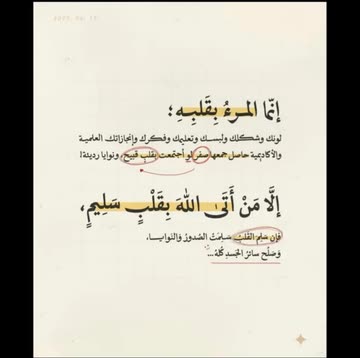 إنَّما المَرءُ بِقَلبِهِ؛
لونك وشكلك ولبسك وتعليمك وفكرك وإنجازاتك العلمية
والأكاديمية حاصل جمعها صفر لو اجتمعت بقلب قبيح، ونوايا رديئة!
إلَّا مَنْ أَتَى اللَّهَ بِقَلْبٍ سَلِيمٍ،
فإن سَلِمَ القَلبُ سَلِمَتْ الصّدورُ وَالنّوايا،
وَصَلُح سائرُ الجَسدِ كُلهُ...